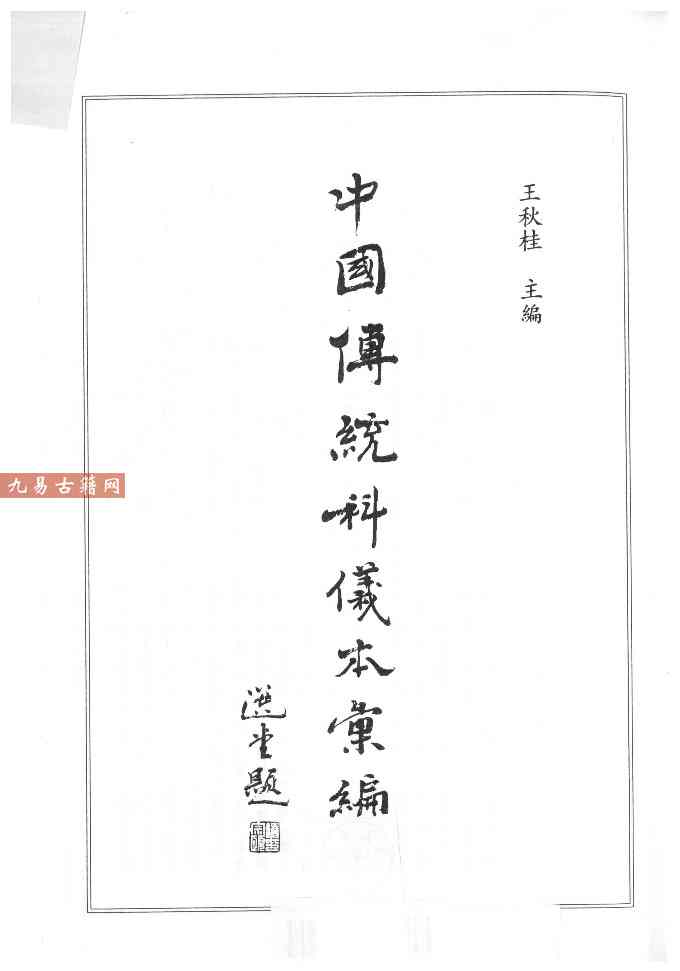 王秋桂 主編
中國傳統科儀本彙編
選堂題
九易古籍网